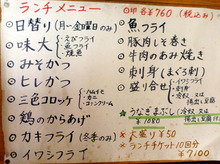 ランチメニュー
◎印各¥760(税込み)
日替り(月〜金曜日のみ)
味大
えびフライ
魚フライ
みそかつ
ヒレかつ
三色コロッケ
ハムイモ
カニ
コーンクリーム
鶏のからあげ
カキフライ(冬季のみ)
イワシフライ
魚フライ
豚肉しそ巻き
牛肉のあみ焼き
刺身(まぐろ刺)
盛り合せ
うなぎまぶし
¥1080
大盛り¥50
ランチチケット10回分
¥7100